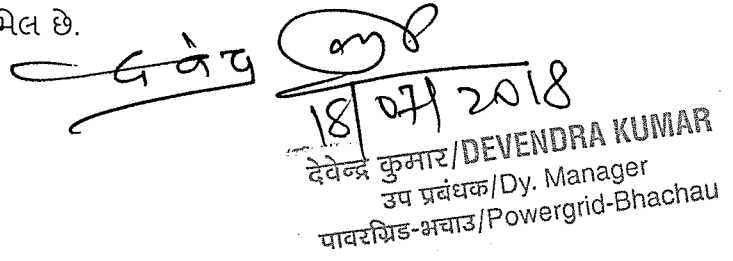 છે.
18/07/2018
देवेन्द्र कुमार/DEVENDRA KUMAR
उप प्रबंधक/Dy. Manager
पावरग्रिड-भचाउ/Powergrid-Bhachau